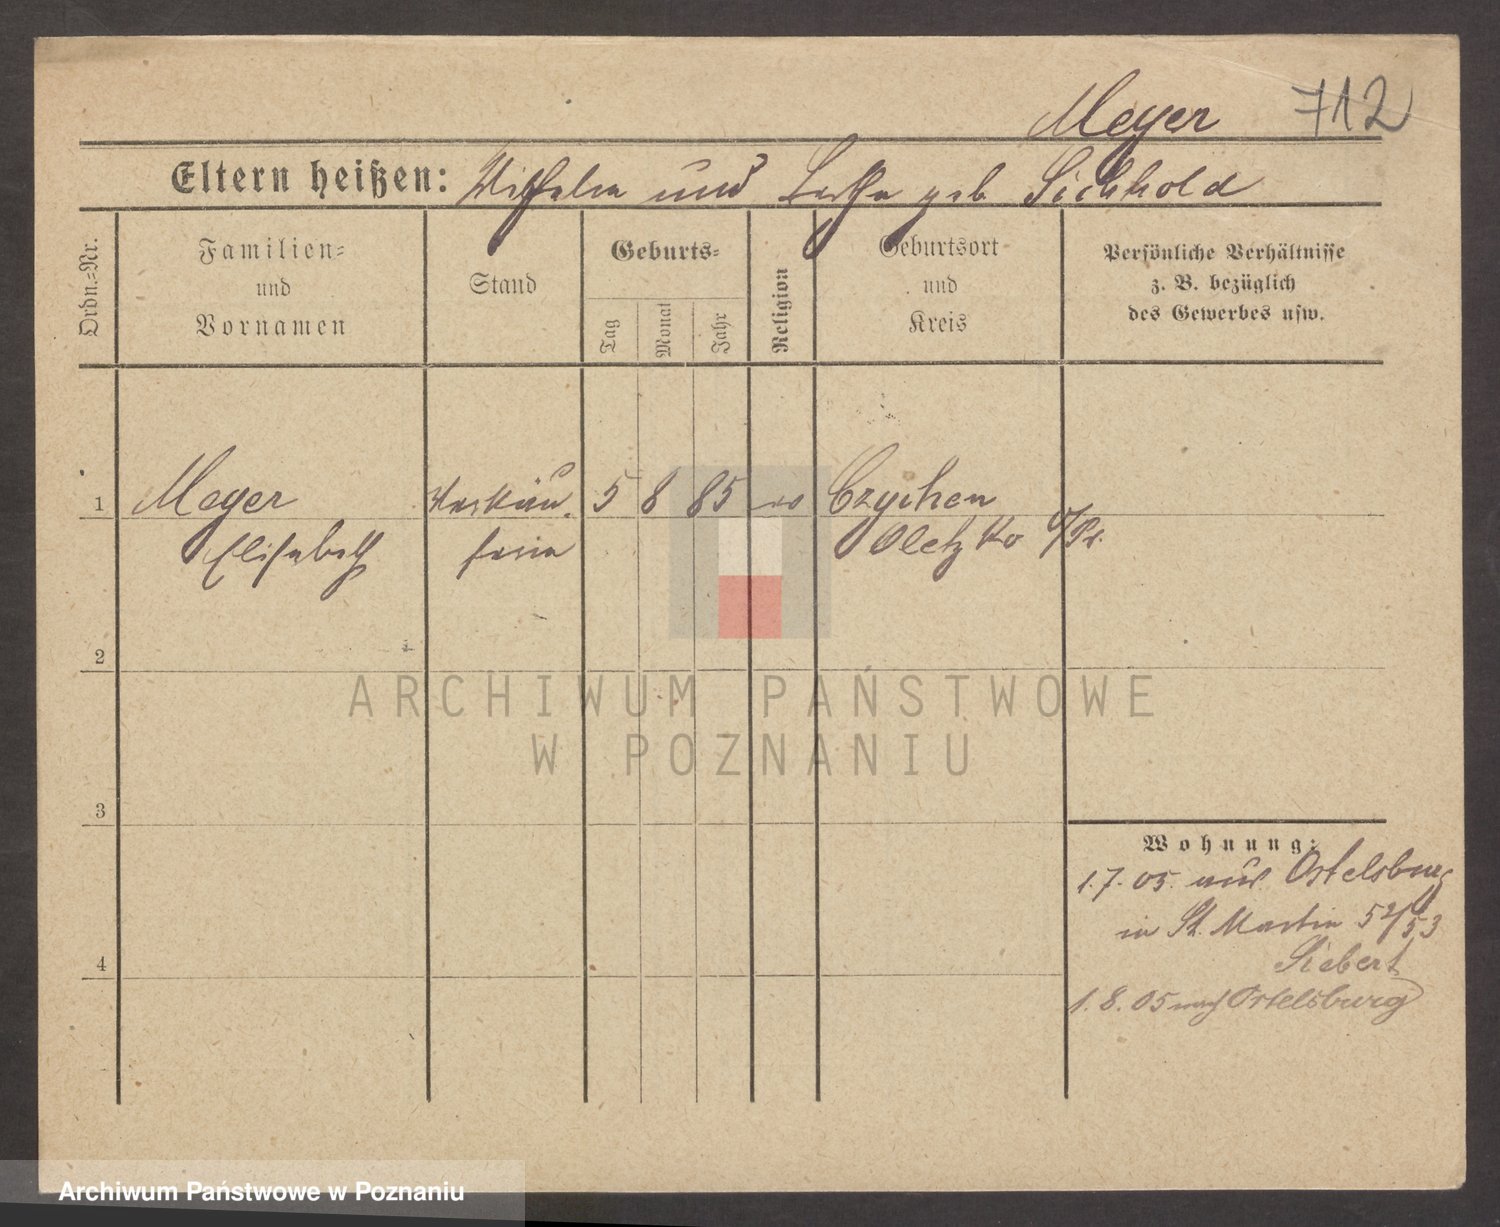 Meyer 712
Eltern heißen: Wilhelm und Bertha geb Sichhold
Ordn.=Nr.
Familien=
und
Vornamen
Stand
Geburts=
Tag
Monat
Jahr
Religion
Geburtsort
und
Kreis
Persönliche Verhältnisse
z. B. bezüglich
des Gewerbes usw.
1 Meyer Verkäu- 5 8 85 ev Czychen
Elisabeth ferin Oletzko O/Pr.
2
3
4
Wohnung:
1.7.05. aus Ortelsburg
in St. Martin 52/53
Siebert
1.8.05 nach Ortelsburg
ARCHIWUM PAŃSTWOWE
W POZNANIU
Archiwum Państwowe w Poznaniu